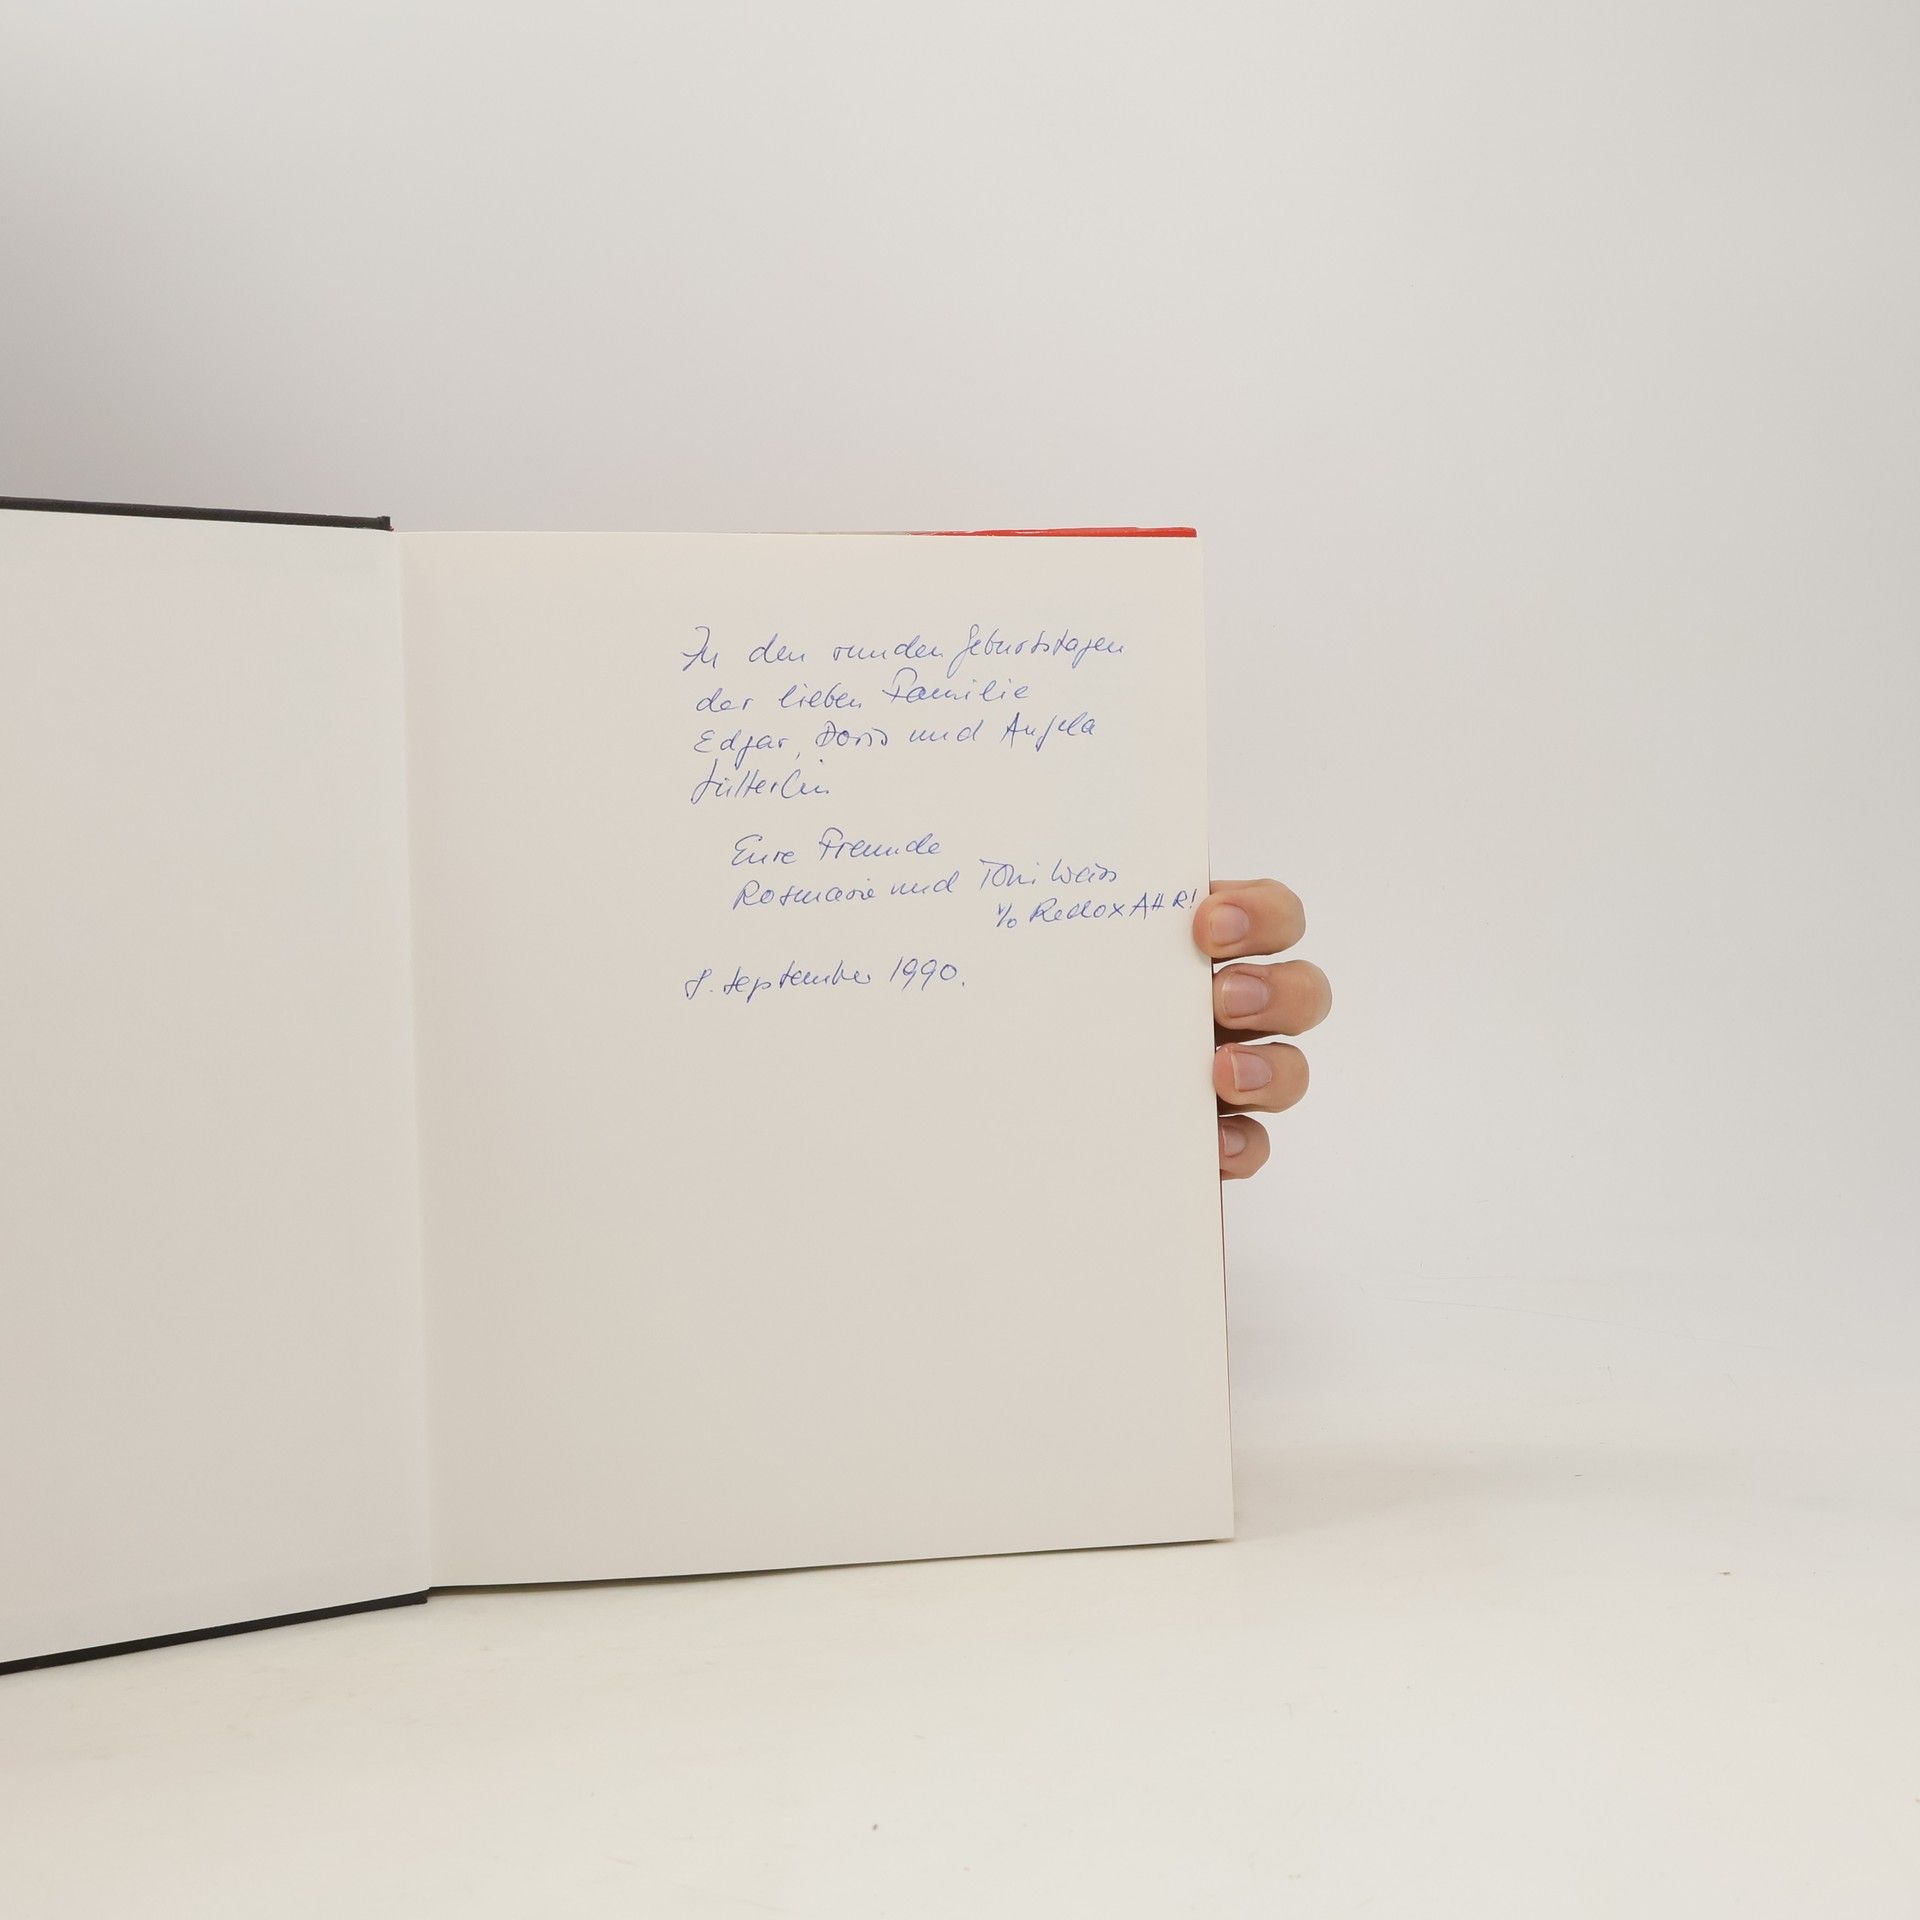 Zu den runden Geburtstagen
der lieben Familie
Edgar, Doris und Angela
Sütterlin
Eure Freunde
Rosmarie und Toni Weiss
Redox
8. September 1990.